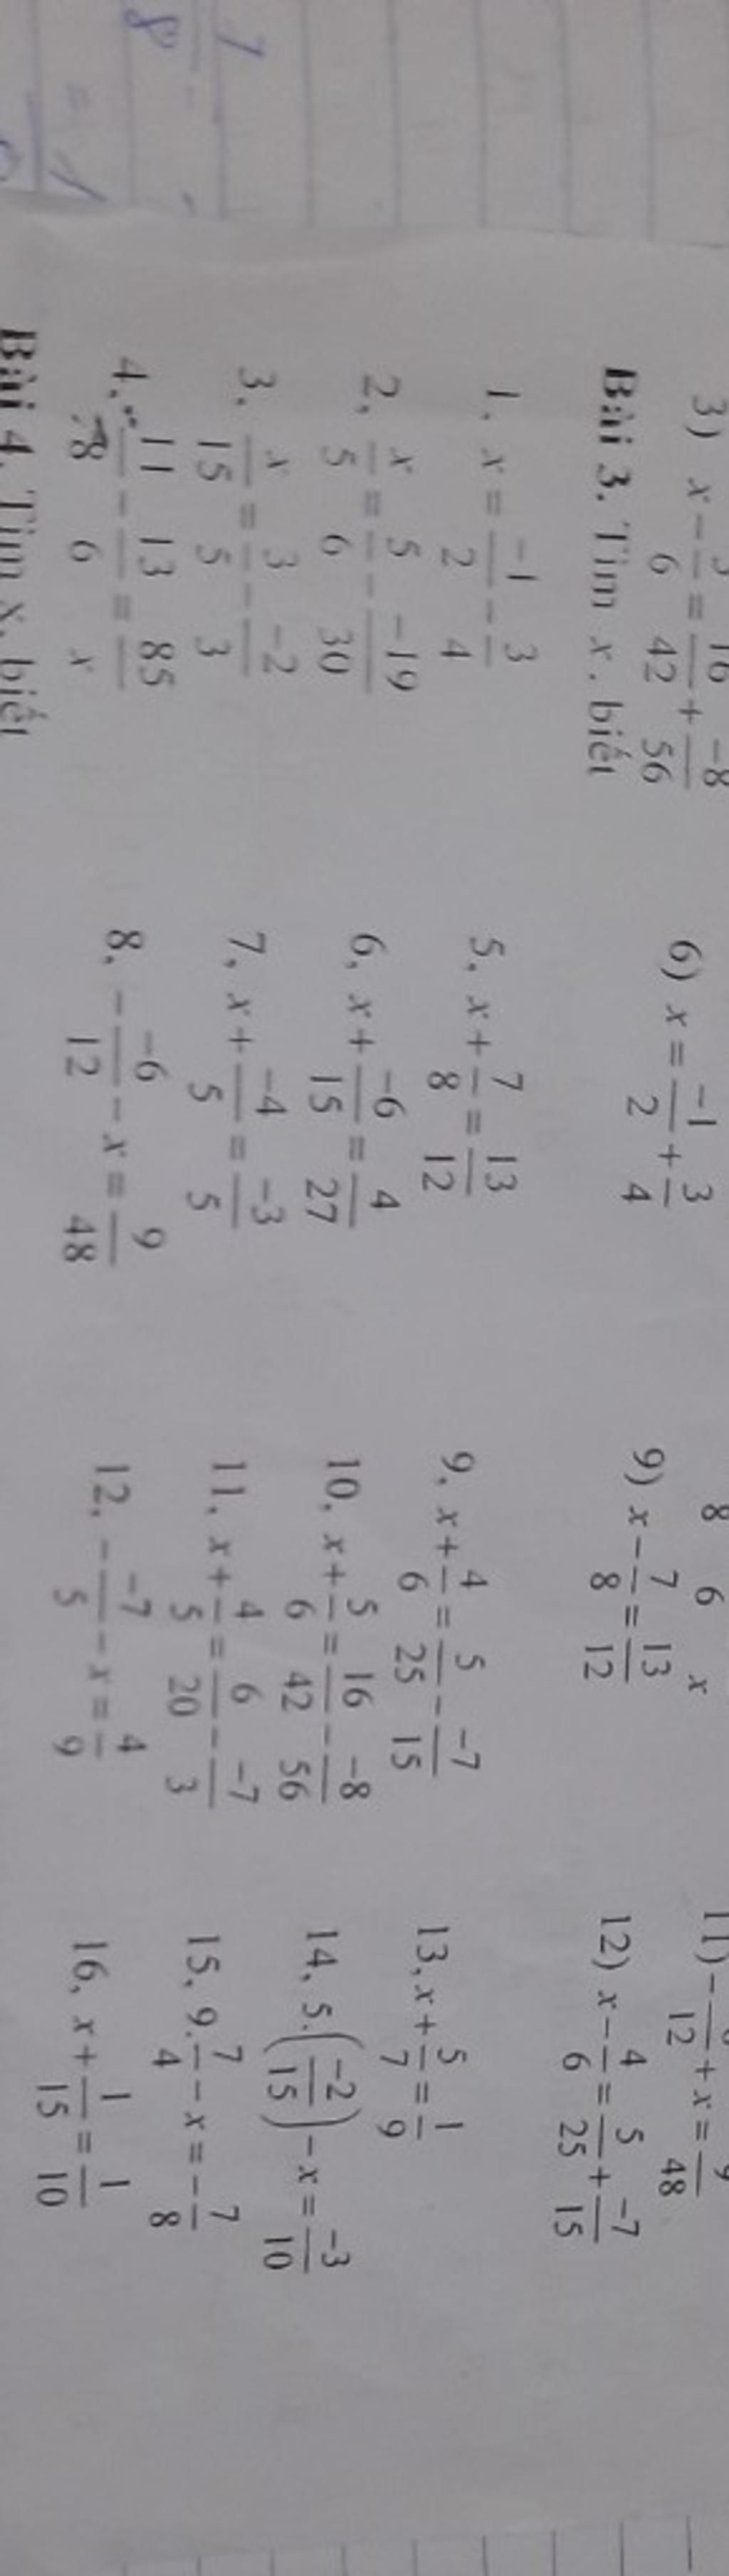 3) x - 5/6 = 16/42 + -8/56
6) x = -1/2 + 3/4
9) x - 7/8 = 13/12
12) x - 4/6 = 5/25 + -7/15
Bài 3. Tìm x, biết
1. x = -1/2 - 3/4
5. x + 7/8 = 13/12
9. x + 4/6 = 5/25 - -7/15
13. x + 5/7 = 1/9
2. x/5 = 5/6 - -19/30
6. x + -6/15 = 4/27
10. x + 5/6 = 16/42 - -8/56
14. 5.(-2/15) - x = -3/10
3. x/15 = 3/5 - -2/3
7. x + -4/5 = -3/5
11. x + 4/5 = 6/20 - -7/3
15. 9.7/4 - x = -7/8
4. 11/8 - 13/6 = 85/x
8. - -6/12 - x = 9/48
12. - -7/5 - x = 4/9
16. x + 1/15 = 1/10
Bài 4. Tìm x, biết